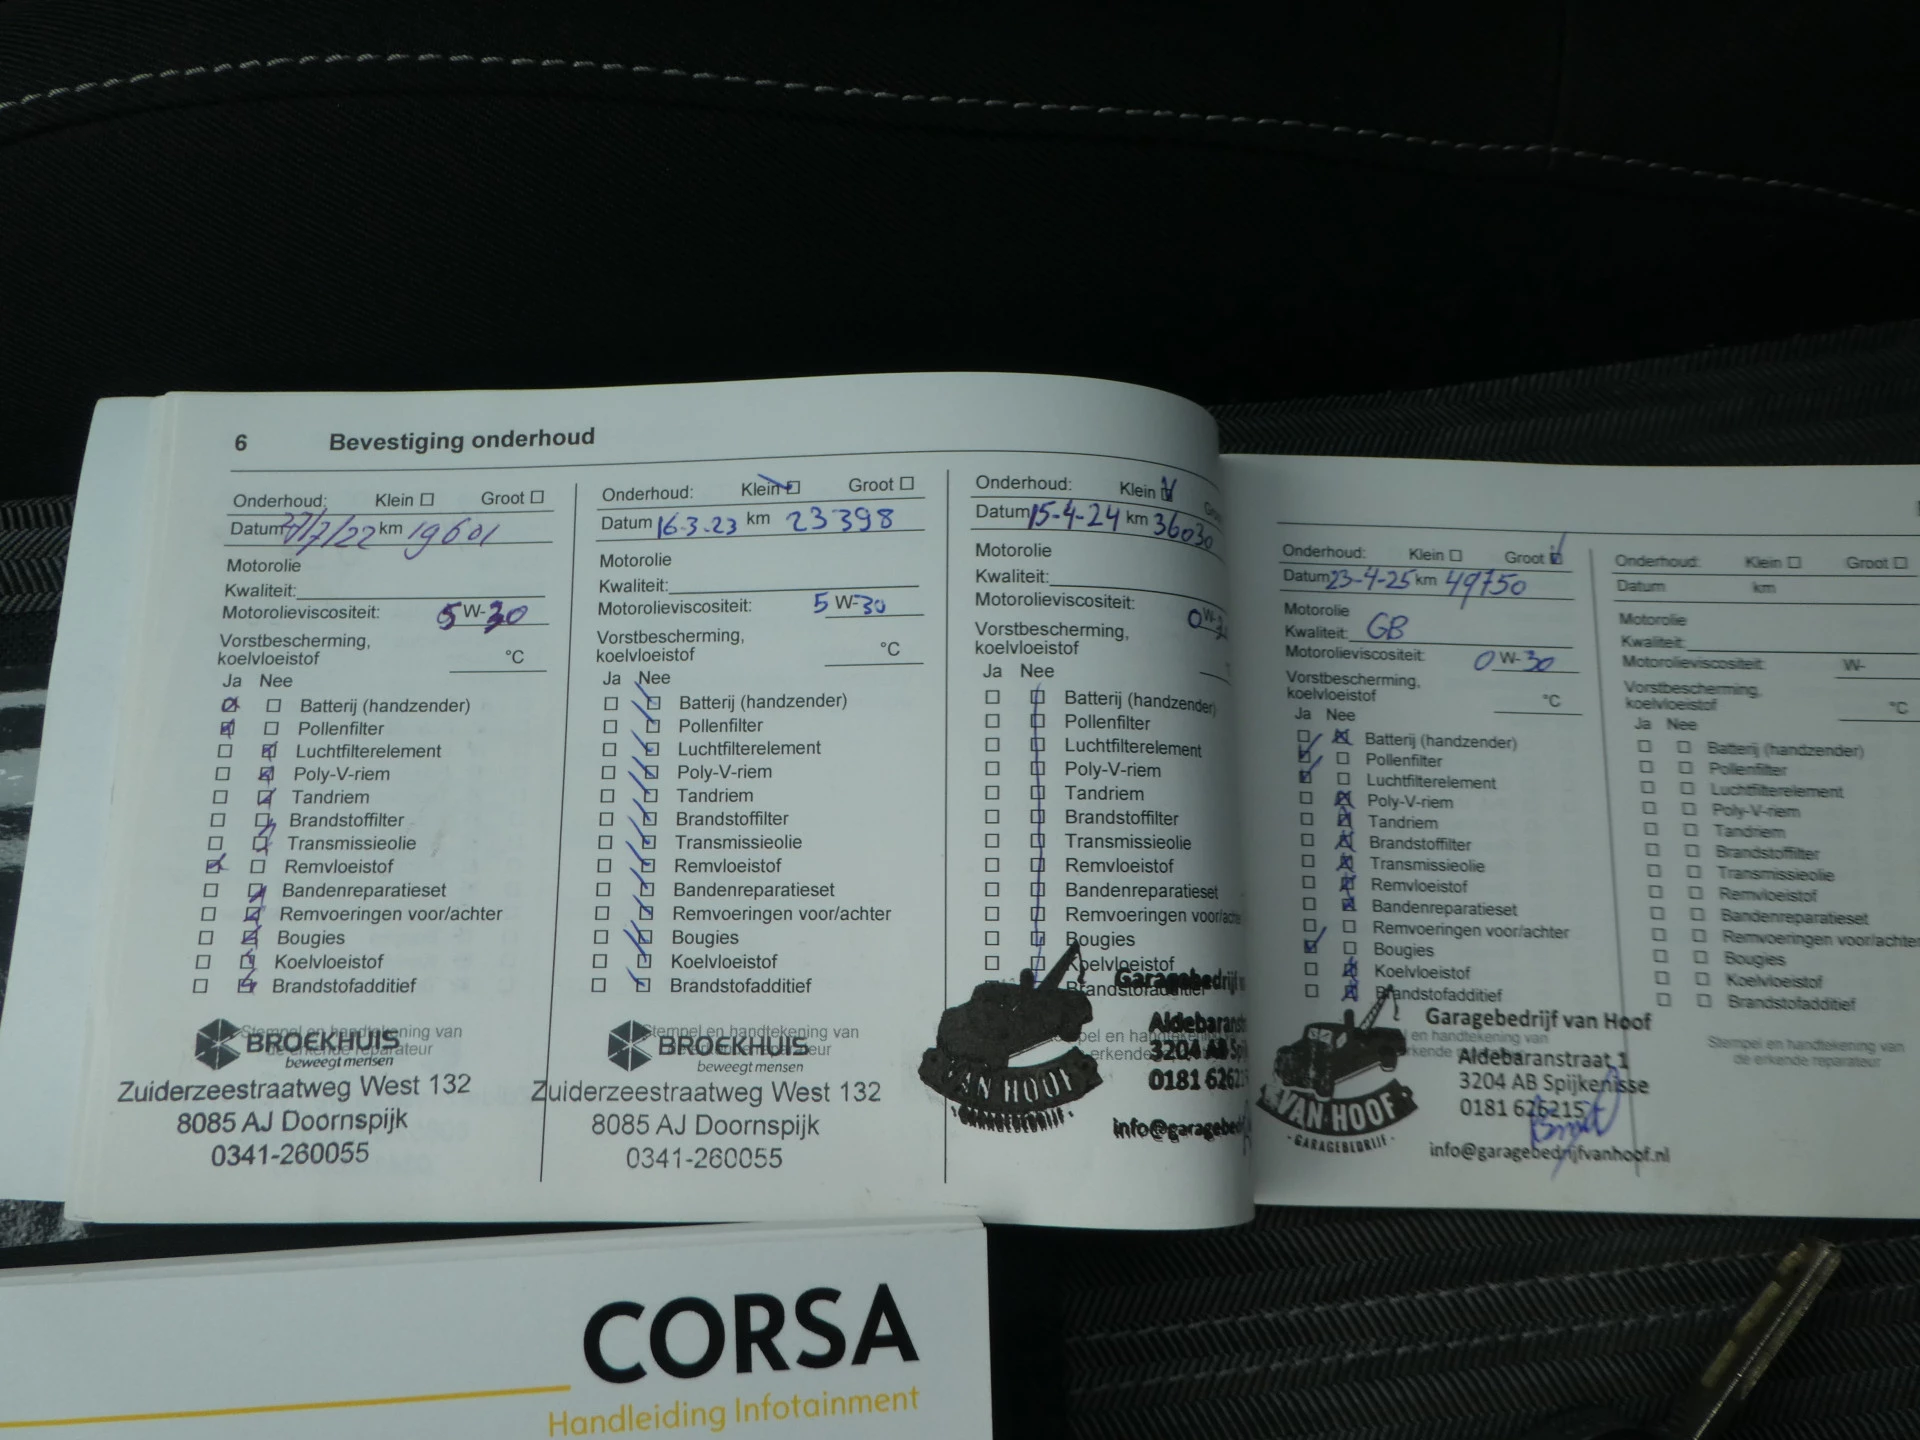 6 Bevestiging onderhoud
Onderhoud: Klein Groot
Datum 27/7/22 km 19601
Motorolie
Kwaliteit:
Motorolieviscositeit: 5 W-30
Vorstbescherming,
koelvloeistof °C
Ja Nee
Batterij (handzender)
Pollenfilter
Luchtfilterelement
Poly-V-riem
Tandriem
Brandstoffilter
Transmissieolie
Remvloeistof
Bandenreparatieset
Remvoeringen voor/achter
Bougies
Koelvloeistof
Brandstofadditief
Stempel en handtekening van
de erkende reparateur
BROEKHUIS
beweegt mensen
Zuiderzeestraatweg West 132
8085 AJ Doornspijk
0341-260055
Onderhoud: Klein Groot
Datum 16-3-23 km 23398
Motorolie
Kwaliteit:
Motorolieviscositeit: 5 W-30
Vorstbescherming,
koelvloeistof °C
Ja Nee
Batterij (handzender)
Pollenfilter
Luchtfilterelement
Poly-V-riem
Tandriem
Brandstoffilter
Transmissieolie
Remvloeistof
Bandenreparatieset
Remvoeringen voor/achter
Bougies
Koelvloeistof
Brandstofadditief
Stempel en handtekening van
BROEKHUIS
beweegt mensen
Zuiderzeestraatweg West 132
8085 AJ Doornspijk
0341-260055
Onderhoud: Klein
Datum 15-4-24 km 36030
Motorolie
Kwaliteit:
Motorolieviscositeit: 0 W-
Vorstbescherming,
koelvloeistof
Ja Nee
Batterij (handzender)
Pollenfilter
Luchtfilterelement
Poly-V-riem
Tandriem
Brandstoffilter
Transmissieolie
Remvloeistof
Bandenreparatieset
Remvoeringen voor/achte
Bougies
Koelvloeistof
Brandstofadditief
Garagebedrijf
3204 AB
0181 6262
VAN HOOF
GARAGEBEDRIJF
Onderhoud: Klein Groot
Datum 23-4-25 km 49750
Motorolie
Kwaliteit: GB
Motorolieviscositeit: 0 W-30
Vorstbescherming,
koelvloeistof °C
Ja Nee
Batterij (handzender)
Pollenfilter
Luchtfilterelement
Poly-V-riem
Tandriem
Brandstoffilter
Transmissieolie
Remvloeistof
Bandenreparatieset
Remvoeringen voor/achter
Bougies
Koelvloeistof
Brandstofadditief
Garagebedrijf van Hoof
en handtekening van
Aldebaranstraat 1
3204 AB Spijkenisse
0181 626215
info@garagebedrijfvanhoof.nl
VAN HOOF
- GARAGEBEDRIJF -
Onderhoud: Klein Groot
Datum km
Motorolie
Kwaliteit:
Motorolieviscositeit: W-
Vorstbescherming,
koelvloeistof °C
Ja Nee
Batterij (handzender)
Pollenfilter
Luchtfilterelement
Poly-V-riem
Tandriem
Brandstoffilter
Transmissieolie
Remvloeistof
Bandenreparatieset
Remvoeringen voor/achter
Bougies
Koelvloeistof
Brandstofadditief
Stempel en handtekening van
de erkende reparateur
CORSA
Handleiding Infotainment